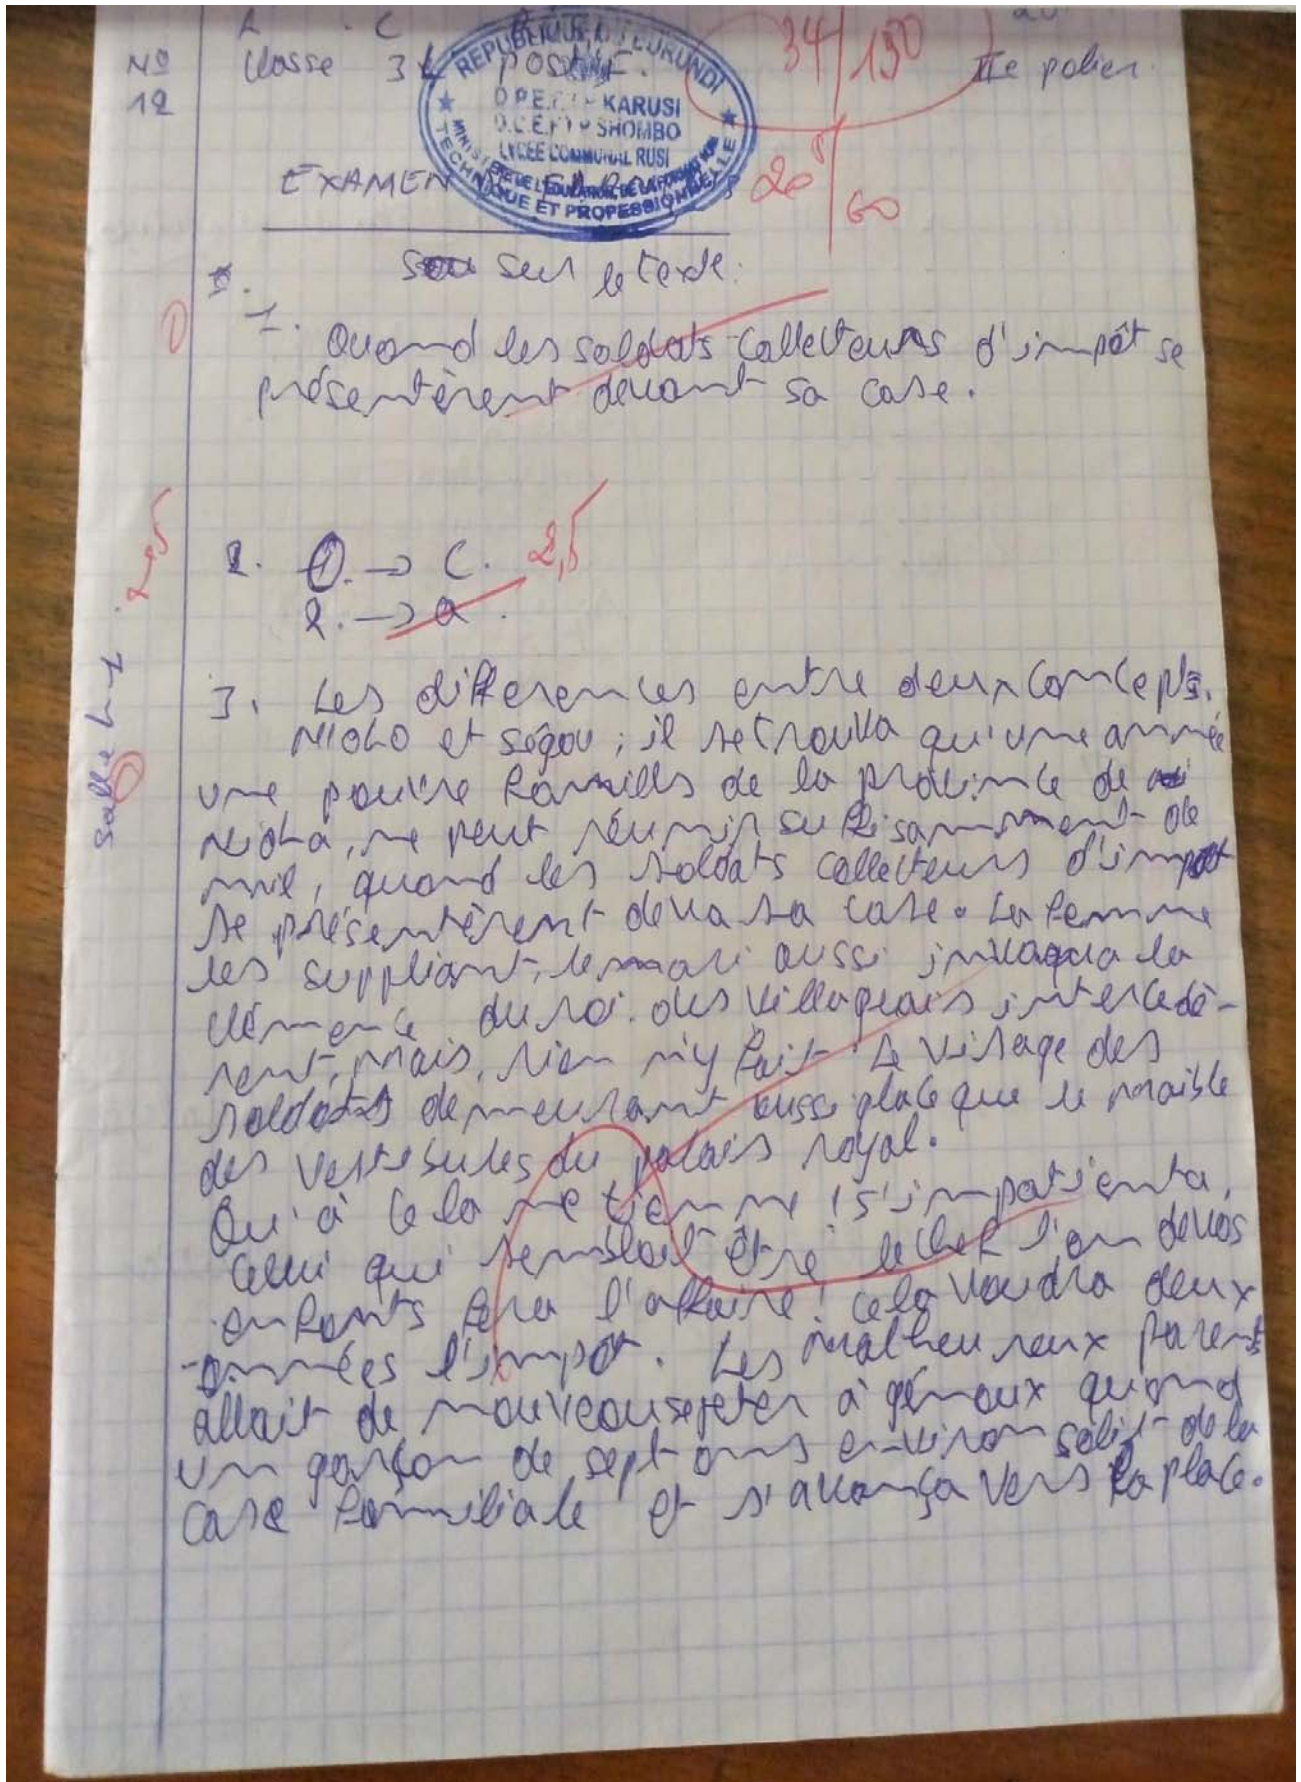 A . C
34/130
No Classe 3L POSTE. IIe palier.
12
REPUBLIQUE DU BURUNDI
D.P.E.F.T.P KARUSI
D.C.E.F.T.P SHOMBO
LYCEE COMMUNAL RUSI
MINISTERE DE L'EDUCATION, DE LA FORMATION
TECHNIQUE ET PROFESSIONNELLE
EXAMEN
20,5/60
Sur le texte:
0
1. Quand les soldats collecteurs d'impôt se
présentèrent devant sa case.
2,5
2. 1. → C. 2,5
2. → a.
Salle L1
0
3. Les differences entre deux concepts.
NIORO et ségou; il se trouva qu'une année
une pauvre familles de la province de
Niora, ne peut réunir suffisamment de
mil, quand les soldats collecteurs d'impôt
se présentèrent deva sa case. La femme
les suppliant, le mari aussi invoqua la
clémence du roi. des villageois intercedè-
rent, mais, rien n'y fait. Le visage des
soldats demeurant aussi place que le maible
des vestibules du palais royal.
Qu'à cela ne tienne ! s'impatienta,
celui qui semblait être le chef l'un de vos
enfants fera l'affaire! cela vaudra deux
années l'impôt. Les malheureux parents
allait de nouveau se jeter à génoux quand
un garçon de sept ans environ solit de la
case familiale et s'avança vers la place.